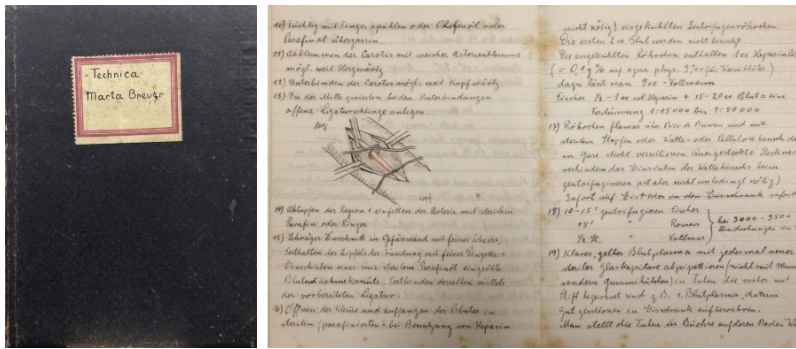 Technica
Marta Breuer
10) Tüchtig mit Ringer spühlen oder Olivenöl oder
Parafinöl übergiessen.
11) Abklemmen der Carotis mit weicher Arterienklemme
mögl. weit Herzwärts
12) Unterbinden der Carotis mögl. weit Kopfwärts
13) In der Mitte zwischen beiden Unterbindungen
offene Ligaturschlinge anlegen.
14) Abtupfen der Region + einfetten der Arterie mit sterilem
Parafin oder Ringer
15) Schräger Einschnitt in Gefässwand mit feiner Schere,
festhalten des Zipfels der Wandung mit feiner Pinzette +
Einschieben einer mit sterilem Parafinöl eingeölte
Festbinden derselben mittels
der vorbereiteten Ligatur.
16) Öffnen der Klemme und auffangen des Blutes in
sterilen (parafinierten + bei Benutzung von Heparin
nicht nötig) eingekühlten Zentrifugenröhrchen.
Die ersten 2 cc Blut werden nicht benutzt.
Die eingekühlten Röhrchen enthalten 1 cc Heparinlös
(= 0,1 g % aqua phys.
dazu lässt man 9 cc - Vollmann
Fischer ½ - 1 cc sol Heparin + 15-20 cc Blut = eine
Verdünnung 1:15000 bis 1:20000
17) Röhrchen
sterilen Stopfen oder Watte- oder Cellulose
verhindern das Einsinken des Wattebausch beim
zentrifugieren, ist aber nicht unbedingt nötig)
Sofort auf Eis
18) 10-15' zentrifugieren Fischer
15' " Romeis
½ St. " Vollmar
bei 3000-3500
19) Klares, gelbes Blutplasma mit jedesmal neuer
steriler Glaspipette abpipettieren (nicht mit Mun
sondern Gummihütchen) in Tuben die vorher mit
bezeichnet sind z.B. 1. Blutplasma, datum
gut verschlossen in Eisschrank aufbewahren.
Man stellt die Tuben in Büchse auf deren Boden